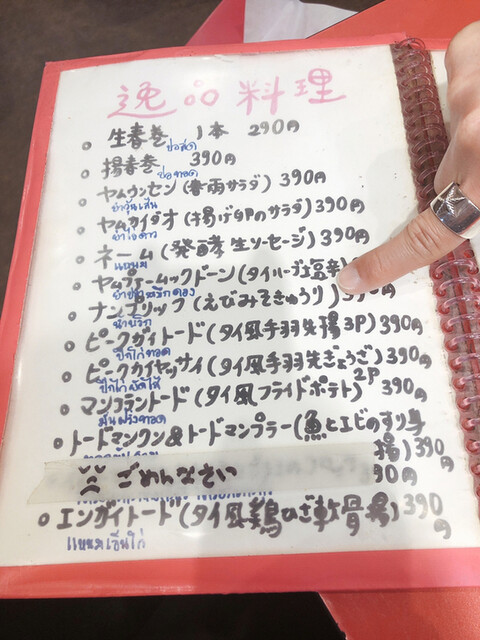 逸品料理
生春巻 1本 290円
ปอสด
揚春巻 390円
ปอทอด
ヤムウンセン(春雨サラダ)390円
ยำวุ้นเส้น
ヤムカイダオ(揚げ卵のサラダ)390円
ยำไข่ดาว
ネーム(発酵生ソーセージ)390円
แหนม
ヤムプラームックドーン(タイハーブ塩辛)
ナンプリック(えびみそきゅうり)390円
น้ำพริก
ピークガイトード(タイ風手羽先揚3P)390円
ปีกไก่ทอด
ピークカイヤッサイ(タイ風手羽先ぎょうざ)390円
ปีกไก่ยัดไส้ 2P
マンフラントード(タイ風フライドポテト)390円
มันฝรั่งทอด
トードマンクン&トードマンプラー(魚とエビのすり身
揚)390円
ごめんなさい 90円
エンガイトード(タイ風鶏ひざ軟骨揚)390円
แหนมเอ็นไก่